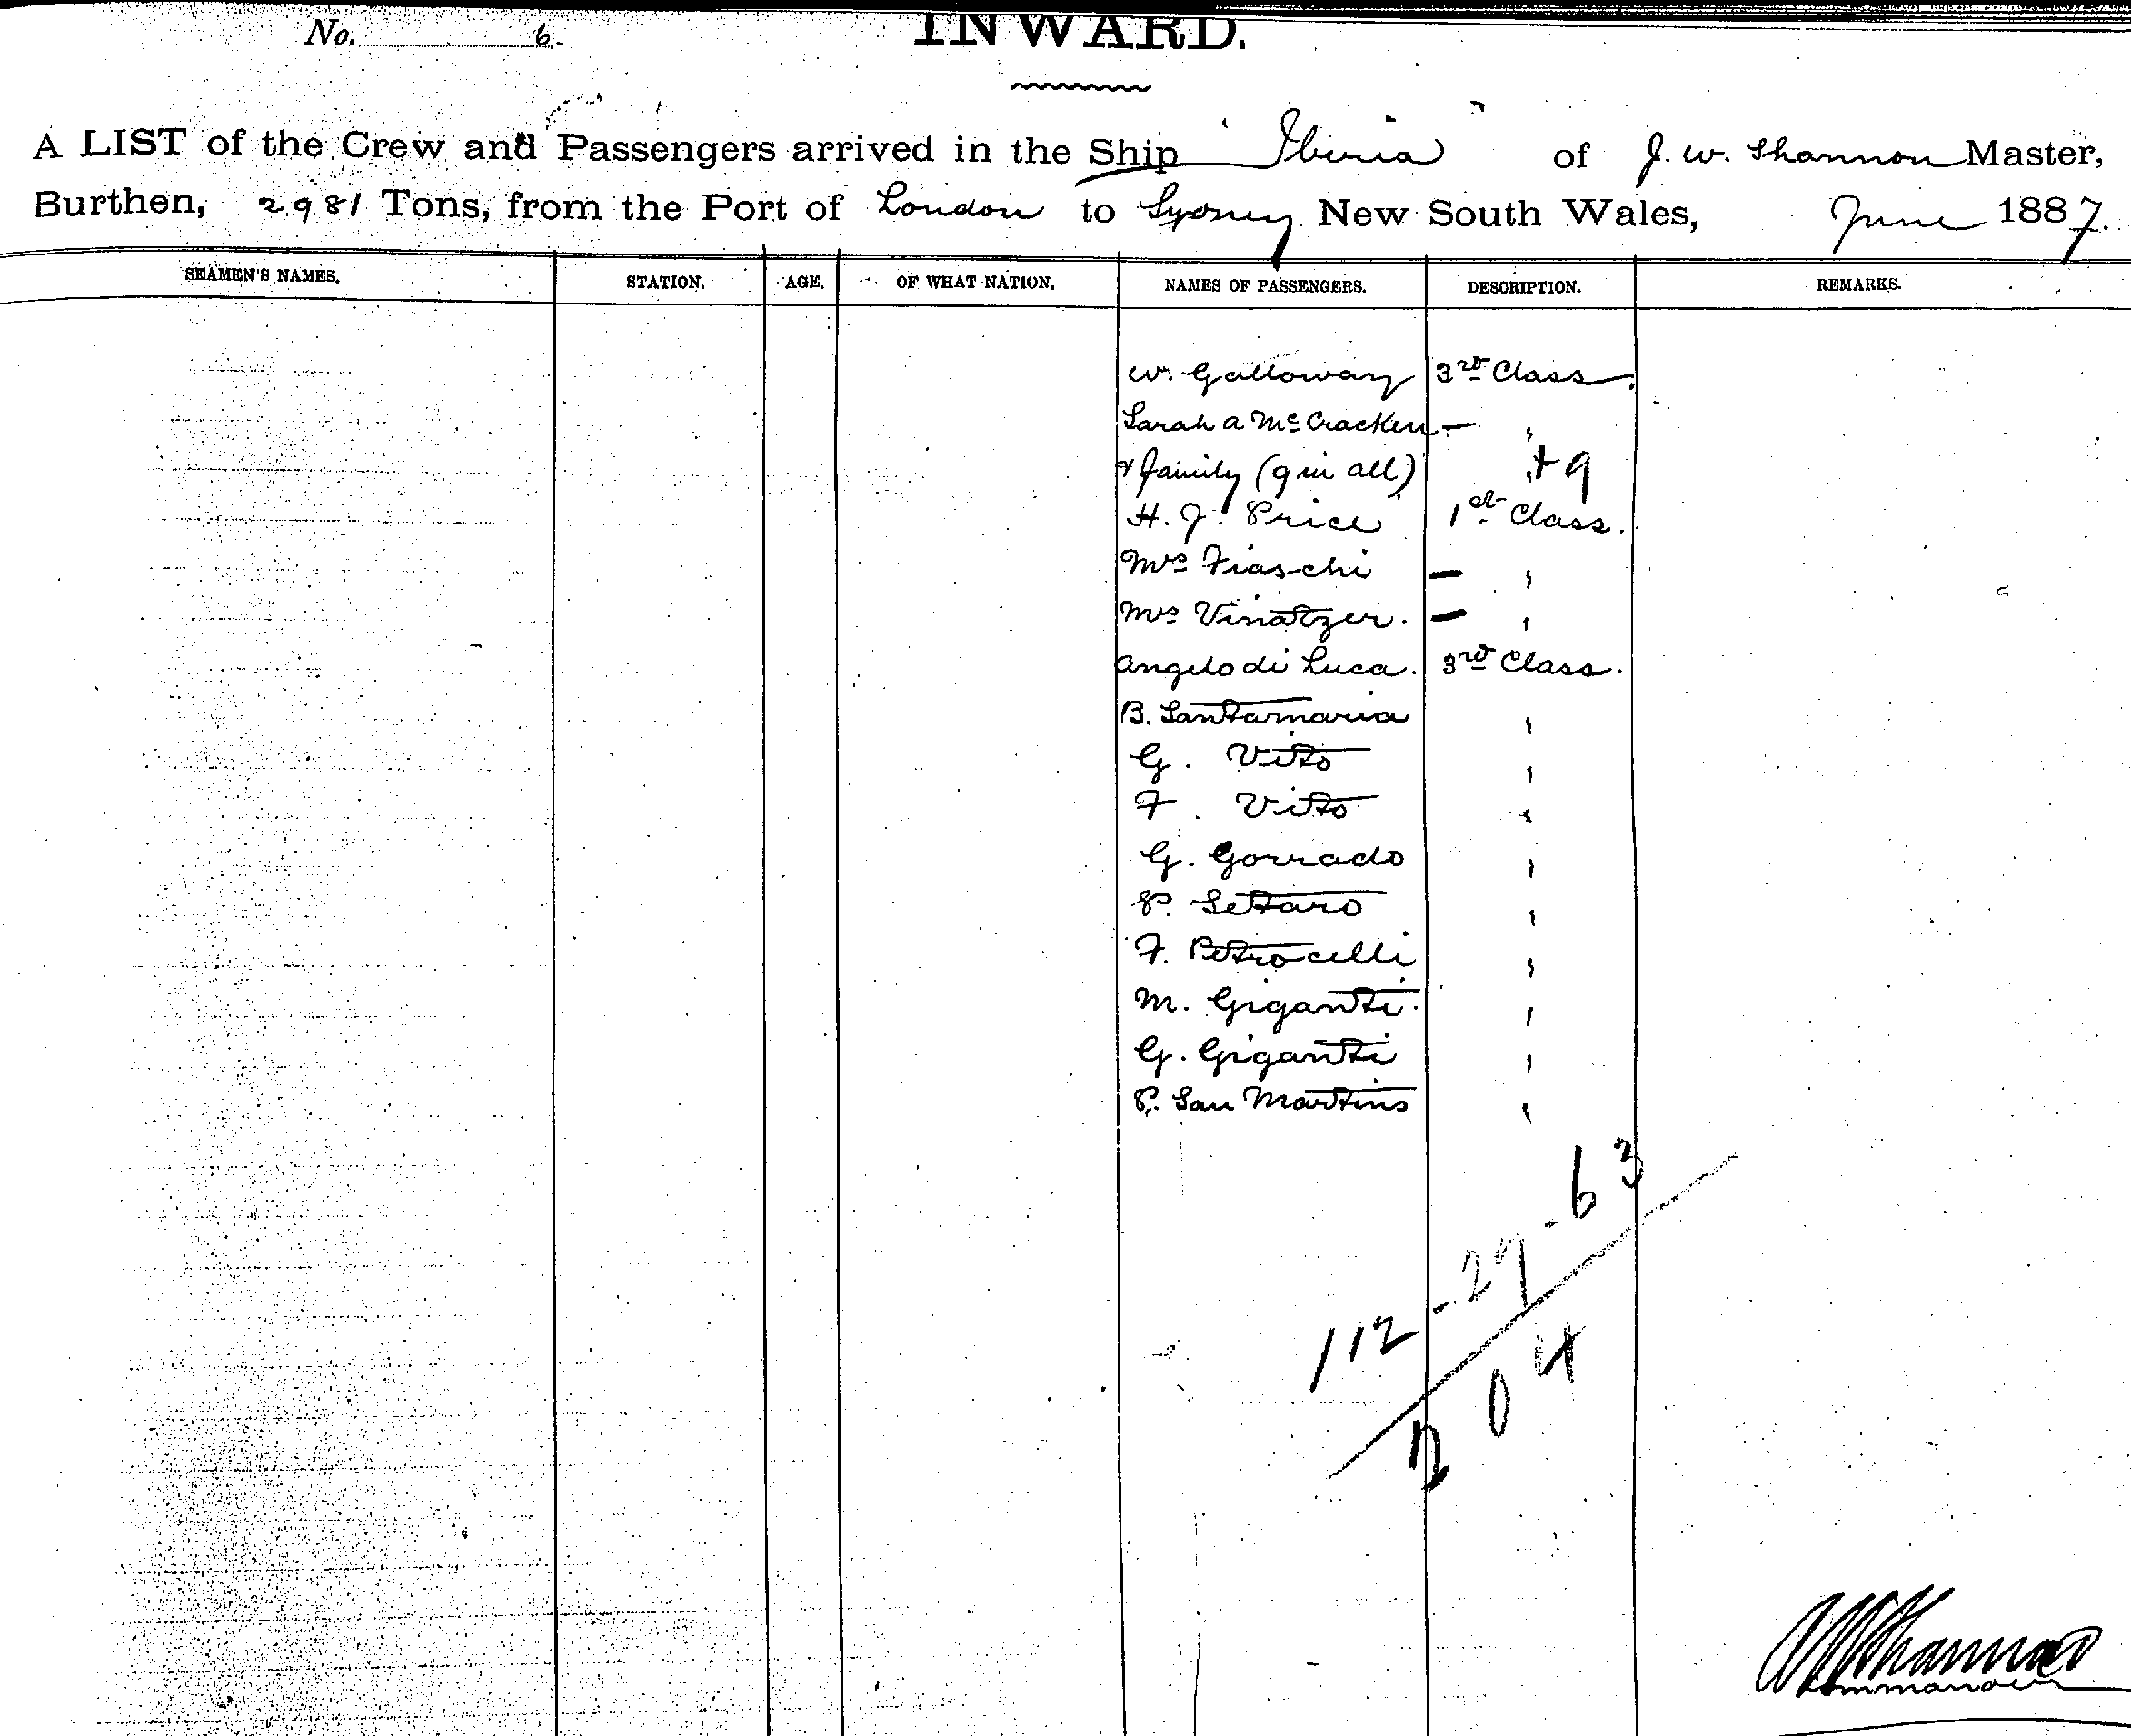 No. 6.
INWARD.
A LIST of the Crew and Passengers arrived in the Ship "Iberia" of J. W. Shannon Master,
Burthen, 2981 Tons, from the Port of London to Sydney New South Wales, June 1887.
SEAMEN'S NAMES. STATION. AGE. OF WHAT NATION. NAMES OF PASSENGERS. DESCRIPTION. REMARKS.
W. Galloway 3rd Class
Sarah A McCracken — "
& family (9 in all) + 9
H. J. Price 1st Class.
Mrs Fiaschi — "
Mrs Vinatzer. — "
Angelo di Luca. 3rd Class.
B. Santamaria "
G. Vito "
F. Vito "
G. Gorrado "
P. Settaro "
F. Petrocelli "
M. Giganti. "
G. Giganti "
P. San Martino "
112 - 29 - 63
204
Shannon
Commander